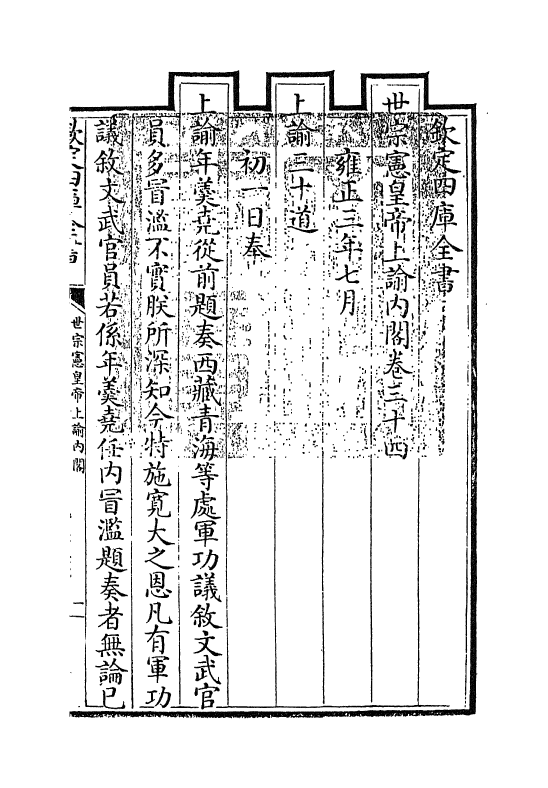 欽定四庫全書
世宗憲皇帝上諭內閣卷三十四
雍正三年七月
上諭三十道
初一日奉
上諭年羹堯從前題奏西藏青海等處軍功議敘文武官
員多冒濫不實朕所深知今特施寬大之恩凡有軍功
議敘文武官員若係年羹堯任內冒濫題奏者無論已
欽定四庫全書
世宗憲皇帝上諭內閣